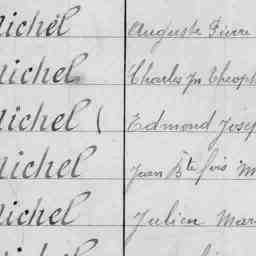 Michel Auguste Pierre
Michel Charles Jn Théoph
Michel Edmond Josep
Michel Jean Bte fois
Michel Julien Mar